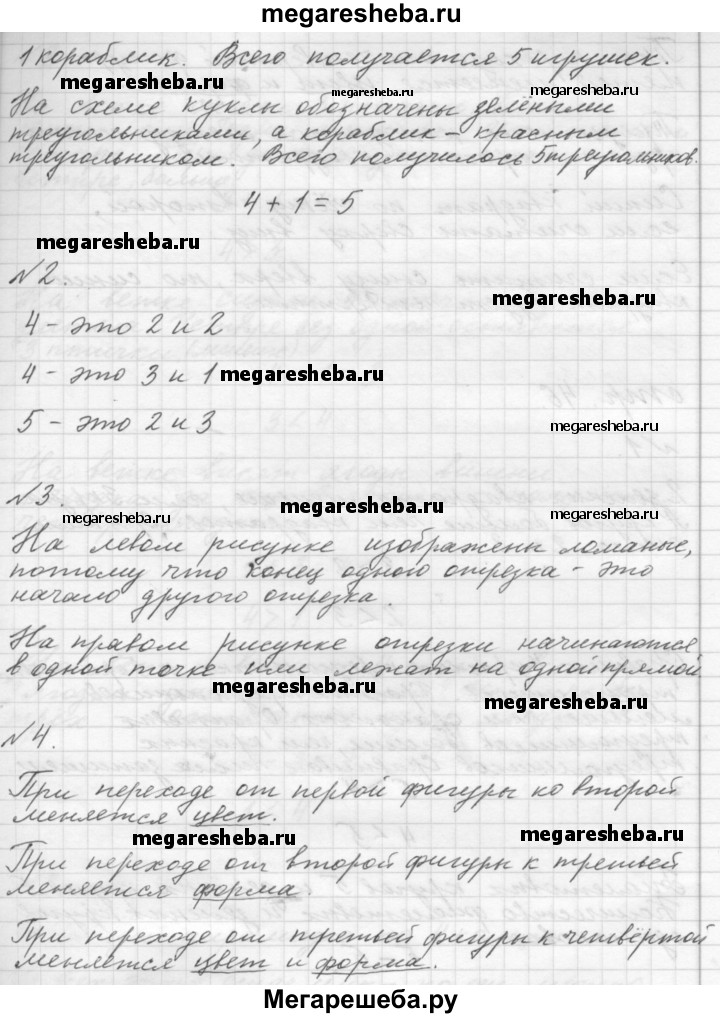 megaresheba.ru
1 кораблик. Всего получается 5 игрушек.
megaresheba.ru
megaresheba.ru
На схеме куклы обозначены зелёными
треугольниками, а кораблик – красным
треугольником. Всего получилось 5 треугольников.
4 + 1 = 5
megaresheba.ru
№2.
megaresheba.ru
4 – это 2 и 2
4 – это 3 и 1
megaresheba.ru
5 – это 2 и 3
№3.
megaresheba.ru
megaresheba.ru
На левом рисунке изображены ломаные,
потому что конец одного отрезка – это
начало другого отрезка.
На правом рисунке отрезки начинаются
в одной точке или лежат на одной прямой
megaresheba.ru
megaresheba.ru
№4.
При переходе от первой фигуры ко второй
меняется цвет.
megaresheba.ru
megaresheba.ru
При переходе от второй фигуры к третьей
меняется форма.
При переходе от третьей фигуры к четвёртой
меняется цвет и форма.
Мегарешеба.ру